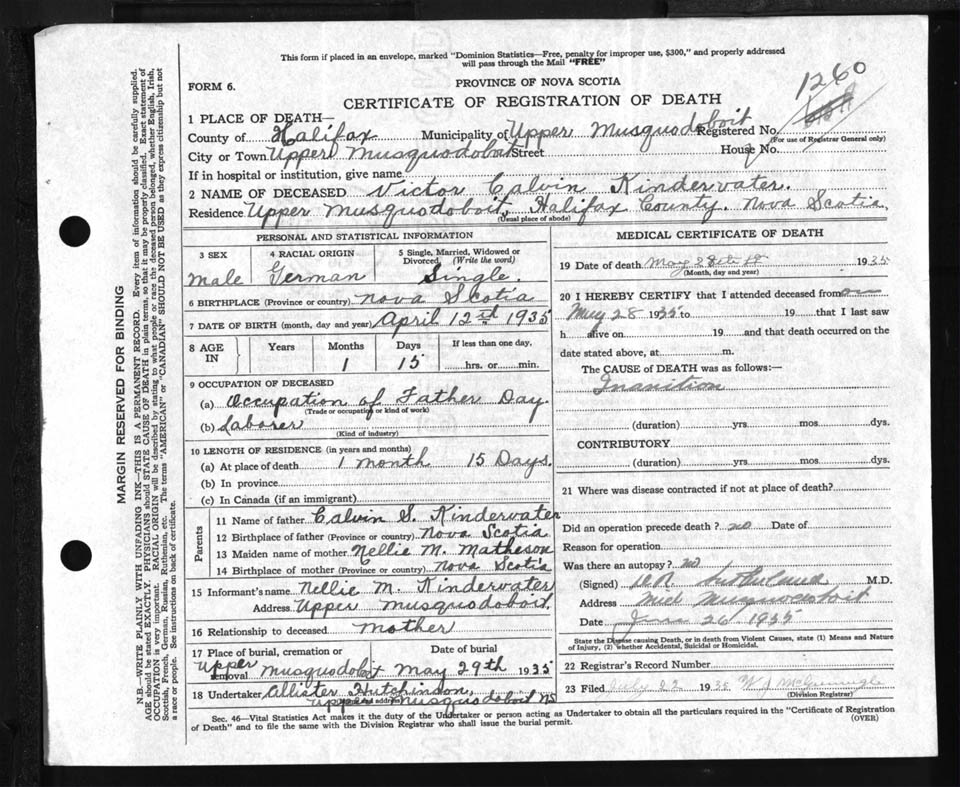 This form if placed in an envelope, marked "Dominion Statistics—Free, penalty for improper use, $300," and properly addressed
will pass through the Mail "FREE"
FORM 6.
PROVINCE OF NOVA SCOTIA
1260
CERTIFICATE OF REGISTRATION OF DEATH
1 PLACE OF DEATH—
County of Halifax Municipality of Upper Musquodoboit Registered No.
(For use of Registrar General only)
City or Town Upper Musquodoboit Street House No.
If in hospital or institution, give name
2 NAME OF DECEASED Victor Calvin Kindervater.
Residence Upper Musquodoboit, Halifax County. Nova Scotia
(Usual place of abode)
PERSONAL AND STATISTICAL INFORMATION
3 SEX 4 RACIAL ORIGIN 5 Single, Married, Widowed or
Divorced. (Write the word)
Male German Single.
6 BIRTHPLACE (Province or country) Nova Scotia
7 DATE OF BIRTH (month, day and year) April 12 1935
8 AGE IN Years Months Days If less than one day.
1 15 hrs. or min.
9 OCCUPATION OF DECEASED
(a) Occupation of Father Day
(Trade or occupation or kind of work)
(b) Laborer
(Kind of industry)
10 LENGTH OF RESIDENCE (in years and months)
(a) At place of death 1 month 15 Days.
(b) In province
(c) In Canada (if an immigrant)
Parents
11 Name of father Calvin S. Kindervater
12 Birthplace of father (Province or country) Nova Scotia
13 Maiden name of mother Nellie M. Matheson
14 Birthplace of mother (Province or country) Nova Scotia
15 Informant's name Nellie M. Kindervater
Address Upper Musquodoboit.
16 Relationship to deceased mother
17 Place of burial, cremation or
removal Upper Musquodobit May 29th 1935
18 Undertaker Allister Hutchinson,
(Name and address) Upper Musquodoboit NS
MEDICAL CERTIFICATE OF DEATH
19 Date of death May 28th 1935
(Month, day and year)
20 I HEREBY CERTIFY that I attended deceased from on
May 28 1935 to 19 that I last saw
h alive on 19 and that death occurred on the
date stated above, at m.
The CAUSE OF DEATH was as follows:—
Inanition
(duration) yrs. mos. dys.
CONTRIBUTORY
(duration) yrs. mos. dys.
21 Where was disease contracted if not at place of death?
Did an operation precede death? no Date of
Reason for operation
Was there an autopsy? no
(Signed) M.D.
Address Mid Musquodoboit
Date June 26 1935
State the Disease causing Death, or in death from Violent Causes, state (1) Means and Nature
of Injury, (2) whether Accidental, Suicidal or Homicidal.
22 Registrar's Record Number
23 Filed July 22 1935 W J
(Division Registrar)
Sec. 46—Vital Statistics Act makes it the duty of the Undertaker or person acting as Undertaker to obtain all the particulars required in the "Certificate of Registration
of Death" and to file the same with the Division Registrar who shall issue the burial permit.
(OVER)
MARGIN RESERVED FOR BINDING
N.B.—WRITE PLAINLY WITH UNFADING INK—THIS IS A PERMANENT RECORD. Every item of information should be carefully supplied.
AGE should be stated EXACTLY. PHYSICIANS should STATE CAUSE OF DEATH in plain terms, so that it may be properly classified. Exact statement of
OCCUPATION is very important. RACIAL ORIGIN will be described by stating to what people or race the deceased person belonged, whether English, Irish,
Scottish, French, German, Russian, Ruthenian, etc. The terms "AMERICAN" or "CANADIAN" SHOULD NOT BE USED as they express citizenship but not
a race or people. See instructions on back of certificate.